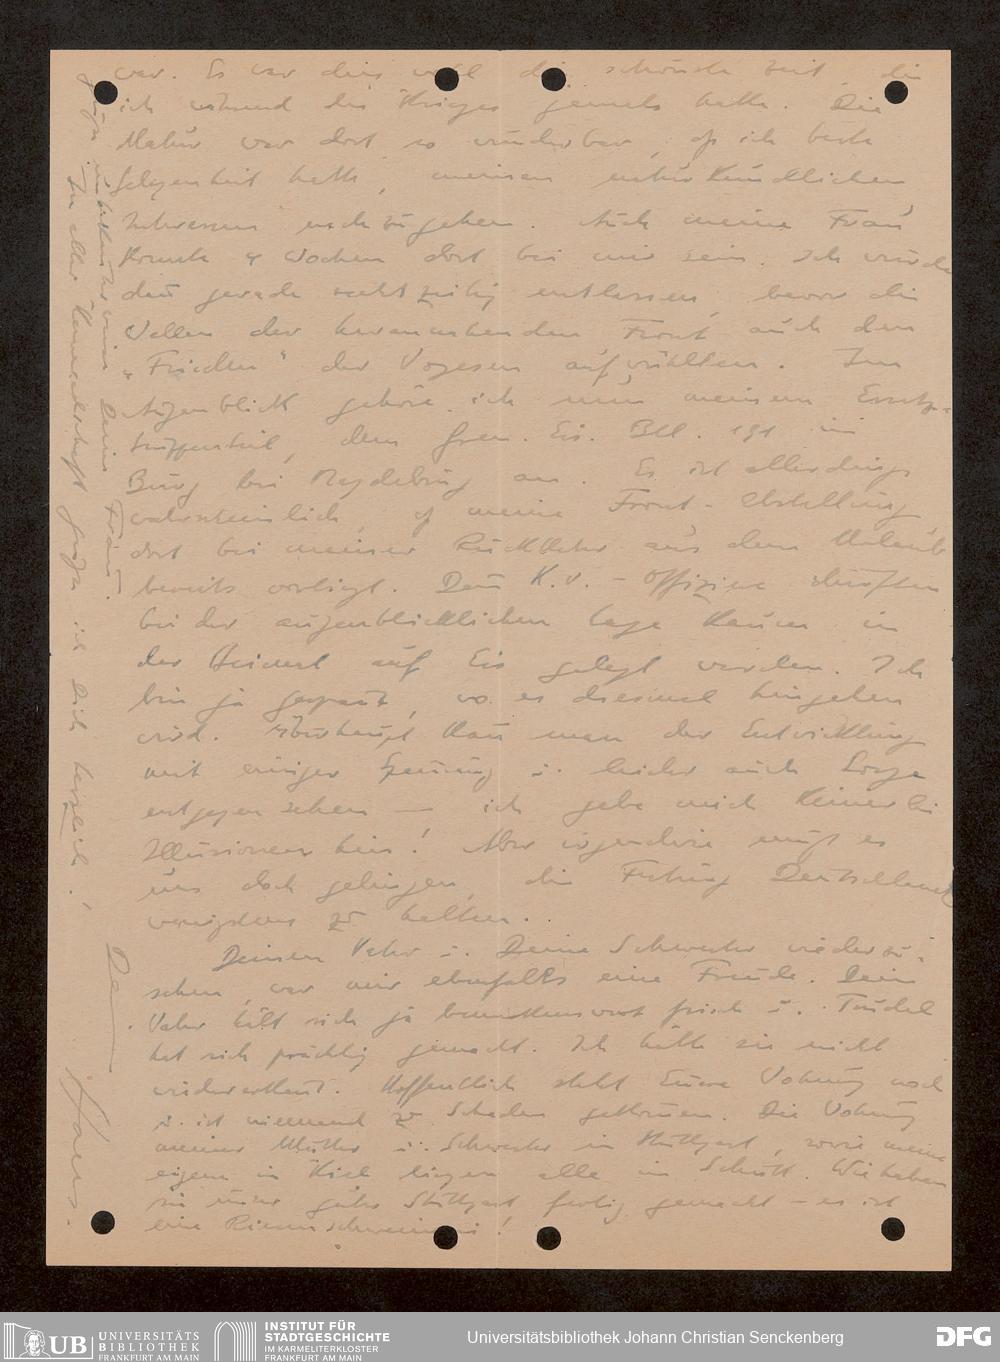 war. Es war dies wohl die schönste Zeit, die
ich während des Krieges jemals hatte. Die
Natur war dort so wunderbar, dass ich beste
Gelegenheit hatte, meinen naturkundlichen
Interessen nachzugehen. Auch meine Frau
konnte 4 Wochen dort bei mir sein. Ich wurde
dann gerade rechtzeitig entlassen, bevor die
Wellen der herannahenden Front auch den
"Frieden" der Vogesen aufwühlten. Im
Augenblick gehöre ich nun meinem Ersatz-
truppenteil, dem Gren. Ers. Btl. 191 in
Burg bei Magdeburg an. Es ist allerdings
wahrscheinlich, dass meine Front-Abstellung
dort bei meiner Rückkehr aus dem Urlaub
bereits vorliegt. Denn K.v.-Offiziere dürften
bei der augenblicklichen Lage kaum in
der Heimat auf Eis gelegt werden. Ich
bin ja gespannt, wo es diesmal hingehen
wird. Überhaupt kann man der Entwicklung
mit einiger Spannung u. leider auch Sorge
entgegen sehen — ich gebe mich keinerlei
Illusionen hin! Aber irgendwie muß es
uns doch gelingen, die Festung Deutschland
wenigstens zu halten.
Deinen Vater u. Deine Schwester wiederzu-
sehen, war mir ebenfalls eine Freude. Dein
Vater hält sich ja bemerkenswert frisch u. Trudel
hat sich prächtig gemacht. Ich hätte sie nicht
wiedererkannt. Hoffentlich steht Eure Wohnung noch
u. ist niemand zu Schaden gekommen. Die Wohnung
meiner Mutter u. Schwester in Stuttgart, sowie meine
eigene in Kiel liegen alle in Schutt. Wie haben
sie unser gutes Stuttgart fertig gemacht – es ist
eine Riesenschweinerei!
Grüße unbekannterweise Deine Frau.
In alter Kameradschaft grüße ich Dich herzlich!
Dein
Hans.
UB UNIVERSITÄTS
BIBLIOTHEK
FRANKFURT AM MAIN
INSTITUT FÜR
STADTGESCHICHTE
IM KARMELITERKLOSTER
FRANKFURT AM MAIN
Universitätsbibliothek Johann Christian Senckenberg
DFG